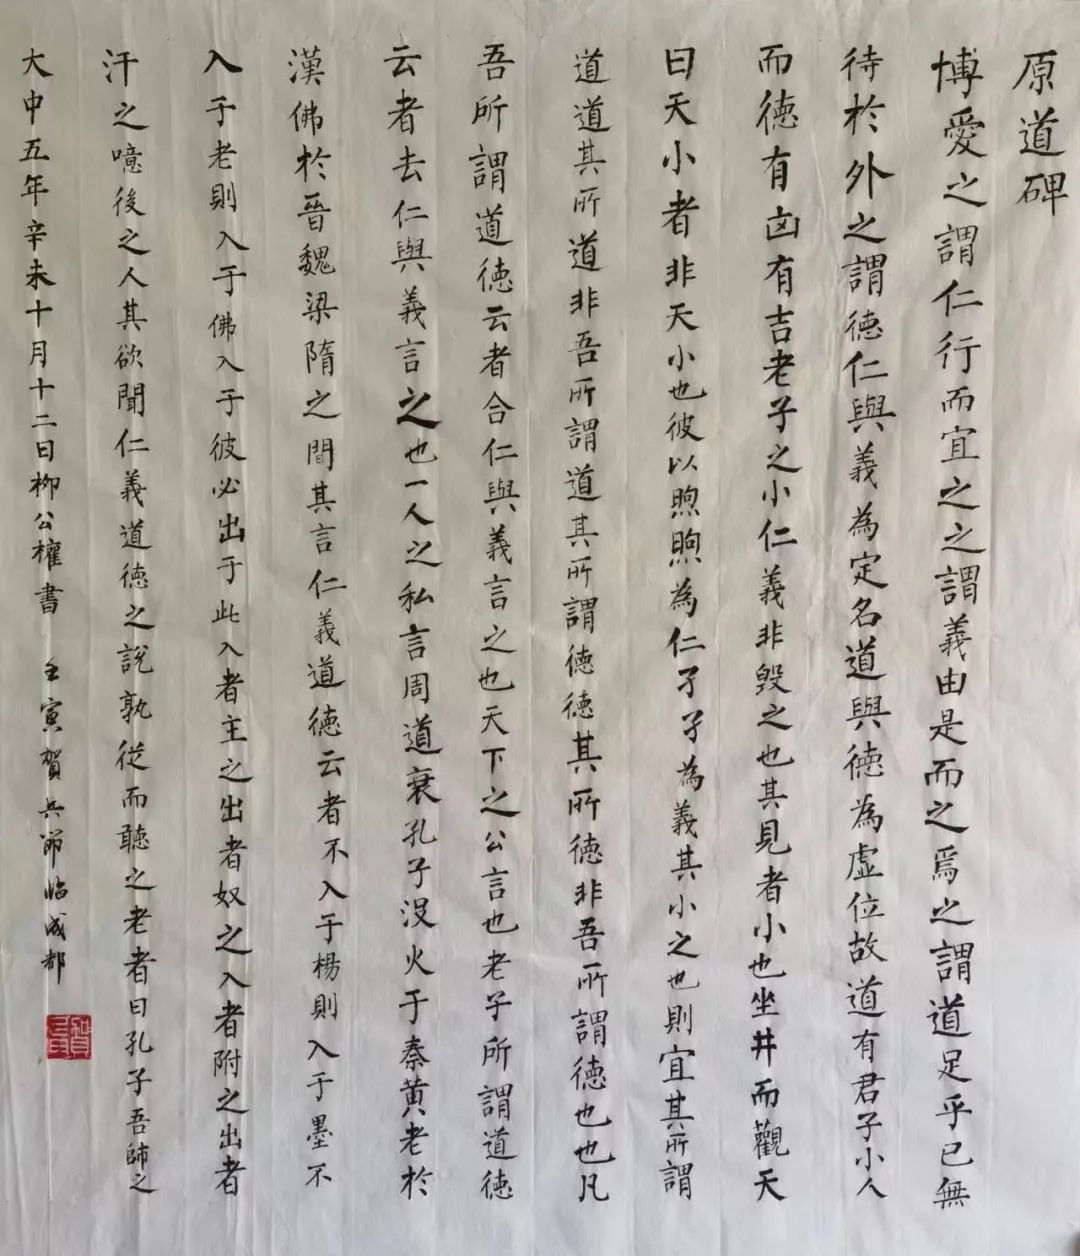 原道碑
博愛之謂仁行而宜之之謂義由是而之焉之謂道足乎已無
待於外之謂德仁與義為定名道與德為虛位故道有君子小人
而德有凶有吉老子之小仁義非毀之也其見者小也坐井而觀天
曰天小者非天小也彼以煦煦為仁孑孑為義其小之也則宜其所謂
道道其所道非吾所謂道其所謂德德其所德非吾所謂德也也凡
吾所謂道德云者合仁與義言之也天下之公言也老子所謂道德
云者去仁與義言之也一人之私言周道衰孔子沒火于秦黃老於
漢佛於晉魏梁隋之間其言仁義道德云者不入于楊則入于墨不
入于老則入于佛入于彼必出于此入者主之出者奴之入者附之出者
汗之噫後之人其欲聞仁義道德之說孰從而聽之老者曰孔子吾師之
大中五年辛未十月十二日柳公權書 壬寅賀兵節臨成都